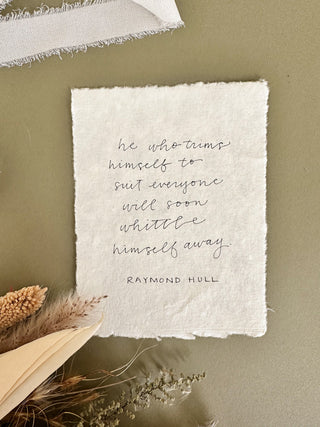 he who trims
himself to
suit everyone
will soon
whittle
himself away.
RAYMOND HULL